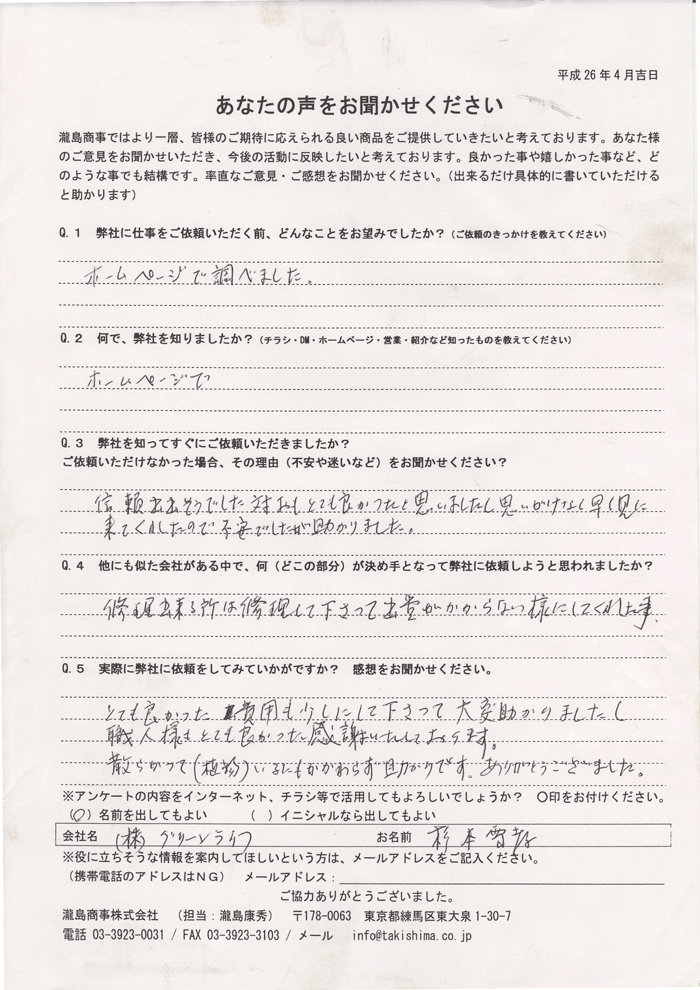 平成26年4月吉日
あなたの声をお聞かせください
瀧島商事ではより一層、皆様のご期待に応えられる良い商品をご提供していきたいと考えております。あなた様
のご意見をお聞かせいただき、今後の活動に反映したいと考えております。良かった事や嬉しかった事など、ど
のような事でも結構です。率直なご意見・ご感想をお聞かせください。(出来るだけ具体的に書いていただける
と助かります)
Q.1 弊社に仕事をご依頼いただく前、どんなことをお望みでしたか?(ご依頼のきっかけを教えてください)
ホームページで調べました。
Q.2 何で、弊社を知りましたか?(チラシ・DM・ホームページ・営業・紹介など知ったものを教えてください)
ホームページで
Q.3 弊社を知ってすぐにご依頼いただきましたか?
ご依頼いただけなかった場合、その理由(不安や迷いなど)をお聞かせください?
信頼出来そうでした 対おもとても良かったと思いましたし思いがけなく早く見に
来てくれたので不安でしたが助かりました。
Q.4 他にも似た会社がある中で、何(どこの部分)が決め手となって弊社に依頼しようと思われましたか?
修理出来る所は修理して下さって出費がかからない様にしてくれた事、
Q.5 実際に弊社に依頼をしてみていかがですか? 感想をお聞かせください。
とても良かった 費用も少しにして下さって大変助かりましたし
職人様もとても良かった感謝いたしております。
散らかって(植物)いるにもかかわらず助かりです。ありがとうございました。
※アンケートの内容をインターネット、チラシ等で活用してもよろしいでしょうか? ○印をお付けください。
(○)名前を出してもよい ( )イニシャルなら出してもよい
会社名 (株)グリーンライフ お名前 杉本
※役に立ちそうな情報を案内してほしいという方は、メールアドレスをご記入ください。
(携帯電話のアドレスはNG) メールアドレス:
ご協力ありがとうございました。
瀧島商事株式会社 (担当:瀧島康秀) 〒178-0063 東京都練馬区東大泉1-30-7
電話 03-3923-0031 / FAX 03-3923-3103 / メール info@takishima.co.jp